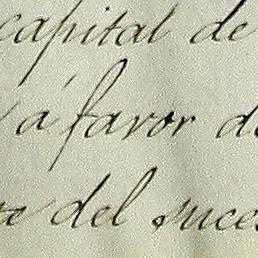 capital de
á favor de
te del suces